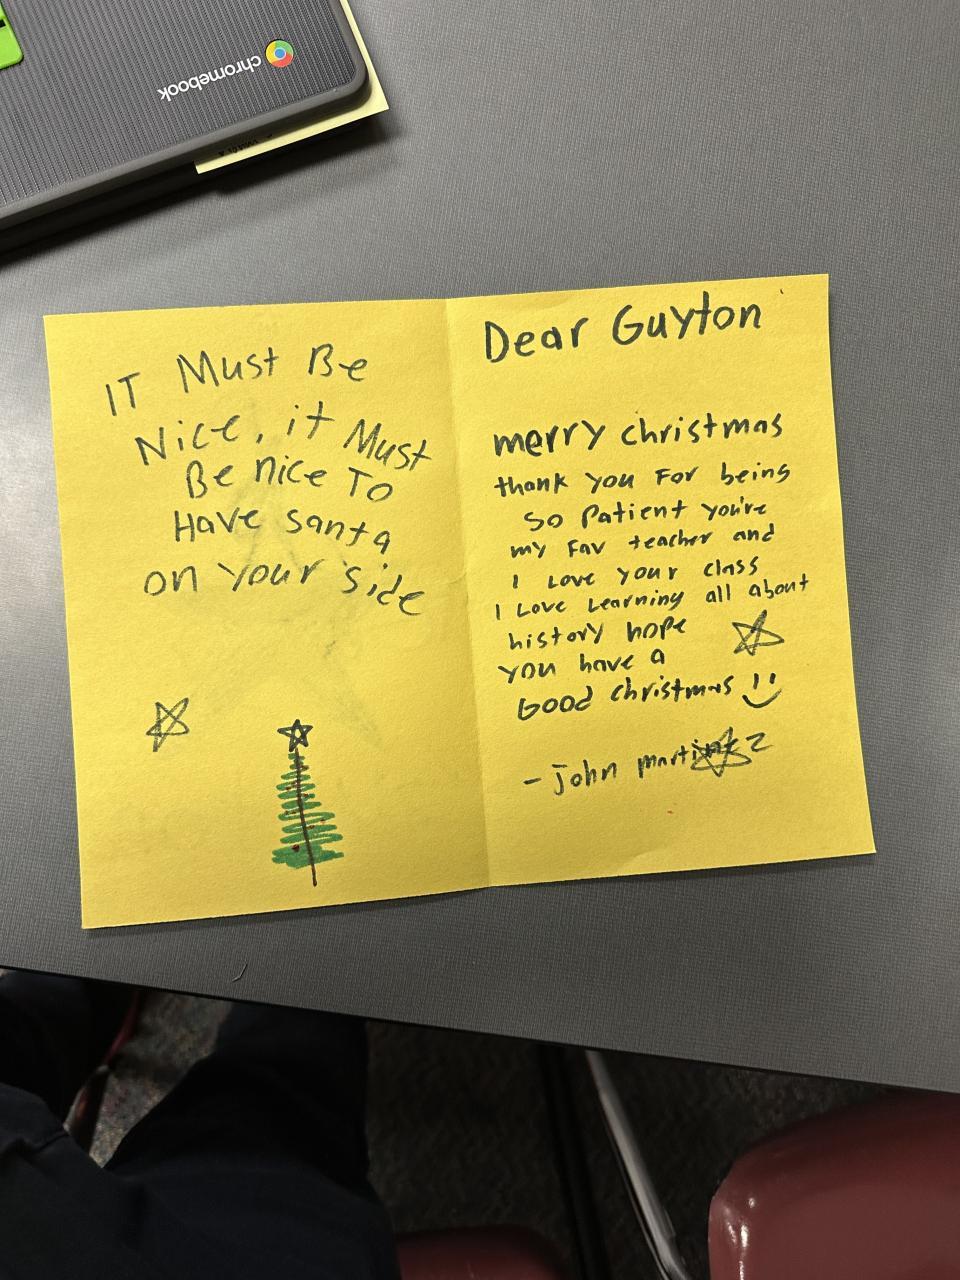 chromebook
IT Must Be
Nice, it Must
Be nice To
Have santa
on your side
Dear Guyton
merry christmas
thank you For being
so Patient you're
my Fav teacher and
I Love your class
I Love Learning all about
history hope
you have a
Good christmas
- john martinez